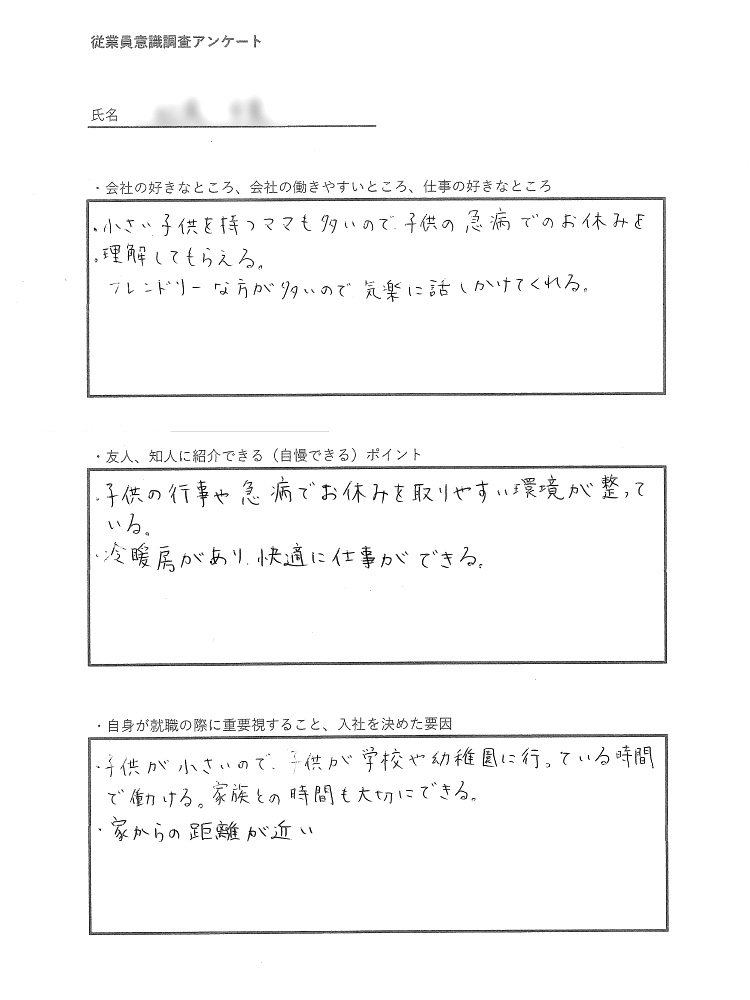 従業員意識調査アンケート
氏名
・会社の好きなところ、会社の働きやすいところ、仕事の好きなところ
・小さい子供を持つママも多いので、子供の急病でのお休みを
・理解してもらえる。
フレンドリーな方が多いので気楽に話しかけてくれる。
・友人、知人に紹介できる（自慢できる）ポイント
・子供の行事や急病でお休みを取りやすい環境が整って
いる。
・冷暖房があり、快適に仕事ができる。
・自身が就職の際に重要視すること、入社を決めた要因
・子供が小さいので、子供が学校や幼稚園に行っている時間
で働ける。家族との時間も大切にできる。
・家からの距離が近い